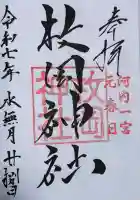 奉拝
河内一宮
元春日
枚岡神社
枚岡
神社
令和七年 水無月 廿捌